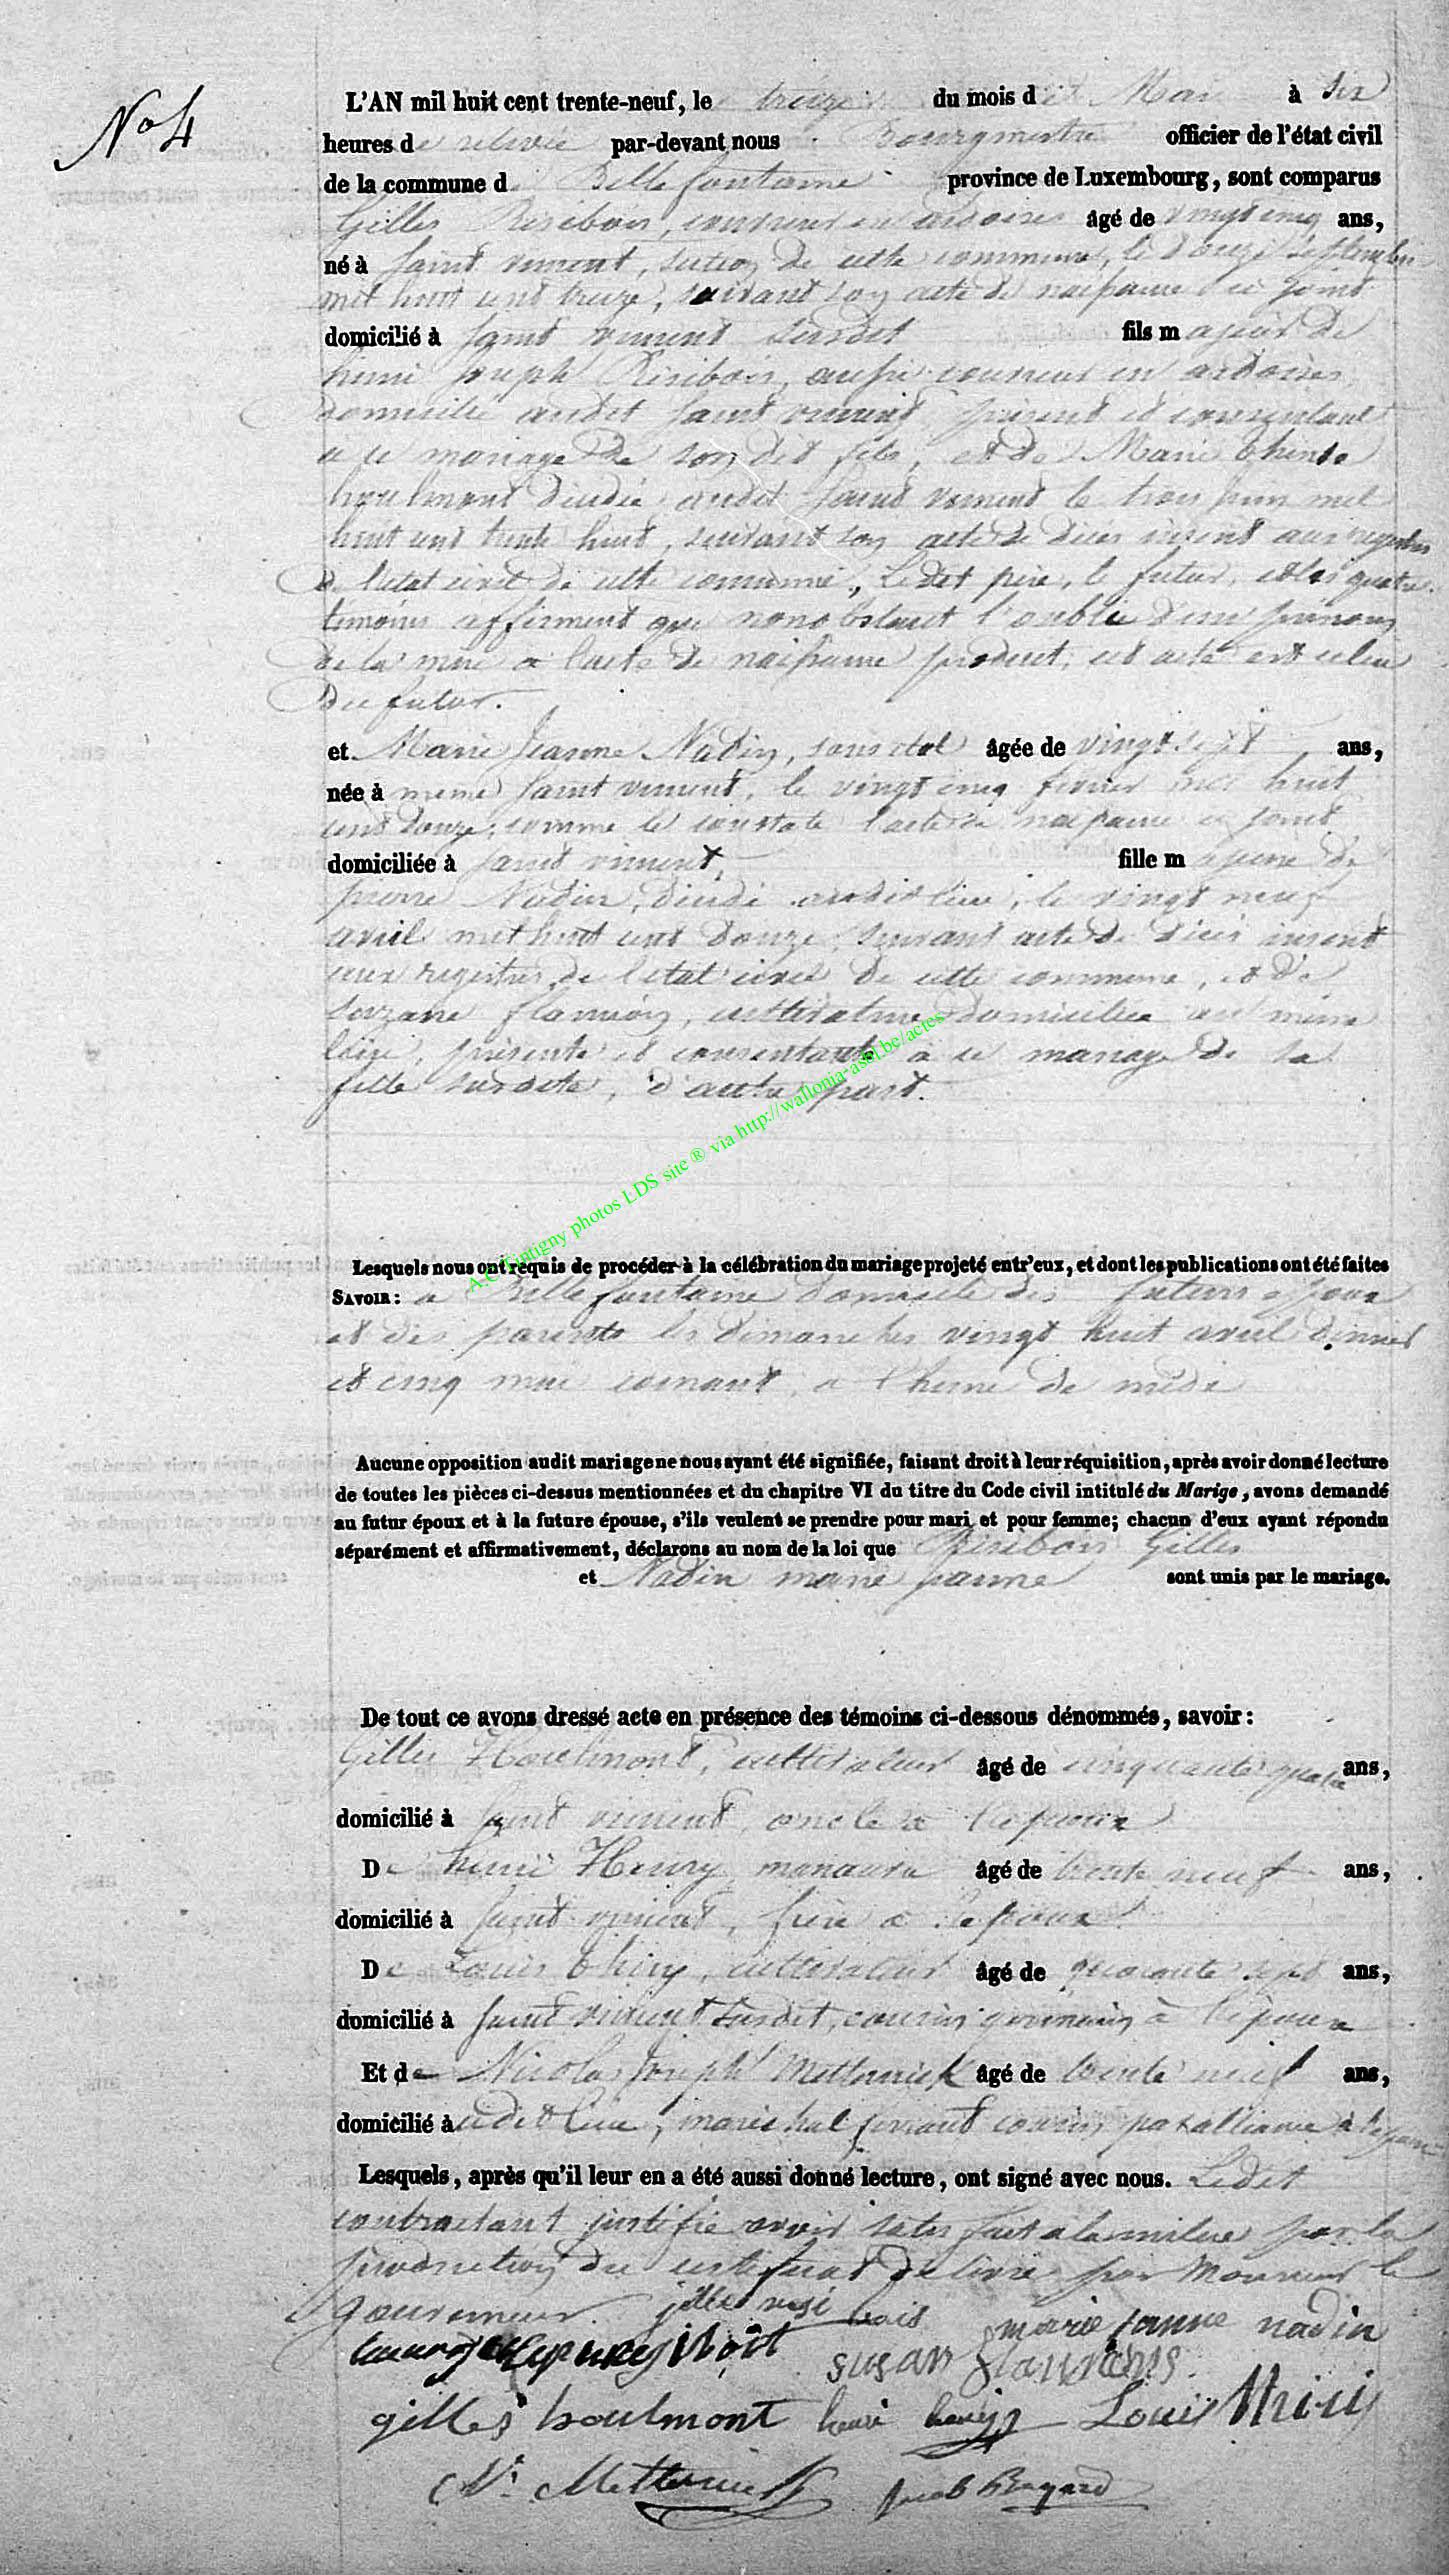 No 4
L'AN mil huit cent trente-neuf, le treize du mois de Mai à six
heures de relevée par-devant nous Bourgmestre officier de l'état civil
de la commune de Bellefontaine province de Luxembourg, sont comparus
Gilles Risibois, couvreur en ardoises âgé de vingt cinq ans,
né à Saint vincent, section de cette commune, le douze septembre
mil huit cent treize, suivant son acte de naissance ci joint
domicilié à Saint vincent susdit fils majeur de
henri joseph Risibois, aussi couvreur en ardoises,
domicilié audit Saint vincent, présent et consentant
a ce mariage de son dit fils, et de Marie thérèse
houlmont décédée audit Saint vincent le trois juin mil
huit cent trente huit, suivant son acte de décès inscrit aux registres
de l'etat civil de cette commune, Ledit père, le futur, et les quatre
témoins affirment que nonobstant l'oublie d'un prénom
de la mere a l'acte de naissance produit, cet acte est celui
du futur.
et Marie Jeanne Nadin, sans etat âgée de vingt sept ans,
née à meme Saint vincent, le vingt cinq fevrier mil huit
cent douze, comme le constate l'acte de naissance ci joint
domiciliée à Saint vincent, fille majeure de
pierre Nadin, décédé audit lieu, le vingt neuf
avril mil huit cent douze, suivant acte de décès inscrit
aux registres de l'etat civil de cette commune, et de
suzane flamion, cultivatrice domiciliée au même
lieu, présente et consentante à ce mariage de sa
fille susdite, d'autre part.
A.C. Tintigny photos LDS site ® via http://wallonia-asbl.be/actes
Lesquels nous ont requis de procéder à la célébration du mariage projeté entr'eux, et dont les publications ont été faites
SAVOIR: a Bellefontaine domicile des futurs epoux
et des parents les dimanches vingt huit avril dernier
et cinq mai courant, a l'heure de midi
Aucune opposition audit mariage ne nous ayant été signifiée, faisant droit à leur réquisition, après avoir donné lecture
de toutes les pièces ci-dessus mentionnées et du chapitre VI du titre du Code civil intitulé du Marige, avons demandé
au futur époux et à la future épouse, s'ils veulent se prendre pour mari et pour femme; chacun d'eux ayant répondu
séparément et affirmativement, déclarons au nom de la loi que Risibois Gilles
et Nadin marie jeanne sont unis par le mariage.
De tout ce avons dressé acte en présence des témoins ci-dessous dénommés, savoir:
Gilles Houlmont, cultivateur âgé de cinquante quatre ans,
domicilié à Saint vincent, oncle a l'epoux
De henri Henry, manœuvre âgé de trente neuf ans,
domicilié à Saint vincent, frère a l'epoux
De Louis thiry, cultivateur âgé de quarante sept ans,
domicilié à Saint vincent susdit, cousin germain à l'epoux
Et de Nicolas joseph Metternick âgé de trente neuf ans,
domicilié audit lieu, maréchal ferrant cousin par alliance à l'epoux
Lesquels, après qu'il leur en a été aussi donné lecture, ont signé avec nous. Ledit
contractant justifie avoir satisfait a la milice par la
production du certificat délivré par Monsieur le
gouverneur. marie janne nadin
susan
gilles houlmont henri henry Louis thiri
N. Metternick Jacob Bragard